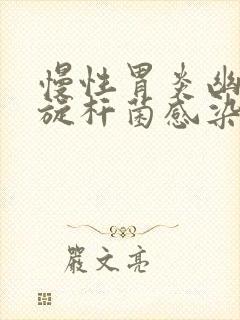 慢性胃炎幽
旋杆菌感染
严文亮